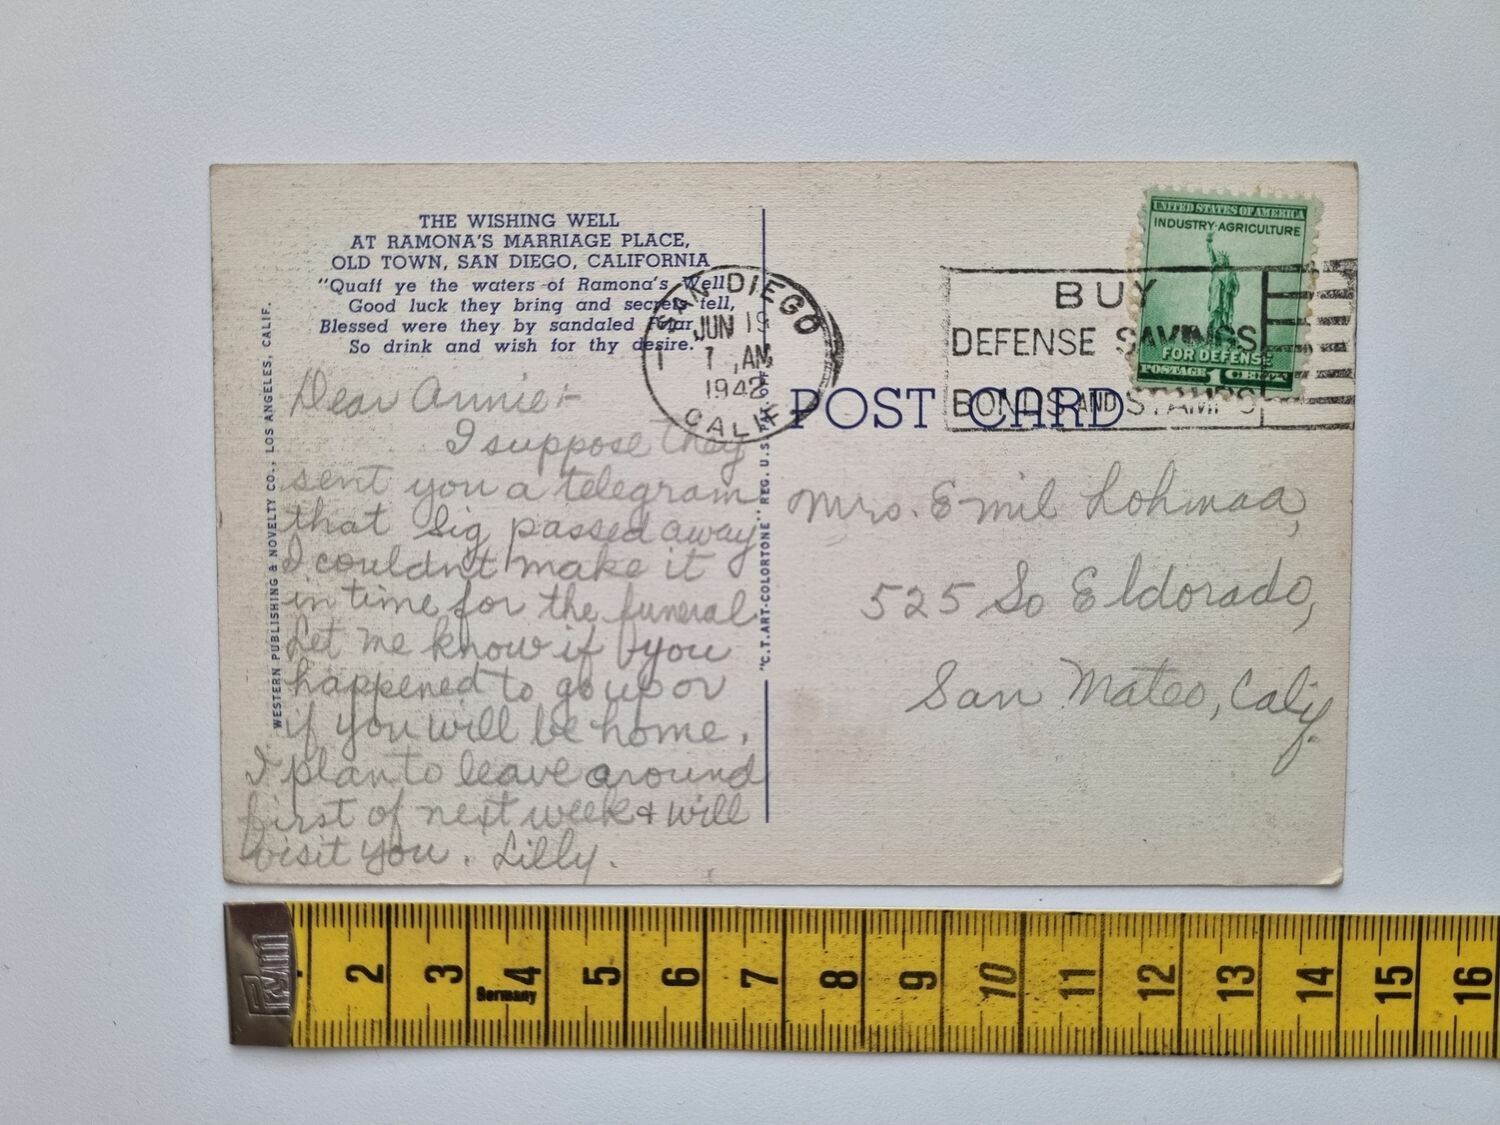 THE WISHING WELL
AT RAMONA'S MARRIAGE PLACE,
OLD TOWN, SAN DIEGO, CALIFORNIA
"Quaff ye the waters of Ramona's Well,
Good luck they bring and secrets tell,
Blessed were they by sandaled Friar,
So drink and wish for thy desire."
WESTERN PUBLISHING & NOVELTY CO., LOS ANGELES, CALIF.
Dear Annie:-
I suppose they
sent you a telegram
that Sig passed away
I couldn't make it
in time for the funeral
Let me know if you
happened to go up or
if you will be home.
I plan to leave around
first of next week & will
visit you. Lilly.
"C.T. ART-COLORTONE" REG. U.S. PAT. OFF.
SAN DIEGO
JUN 19
7 AM
1942
CALIF
1
BUY
DEFENSE SAVINGS
BONDS AND STAMPS
UNITED STATES OF AMERICA
INDUSTRY·AGRICULTURE
FOR DEFENSE
POSTAGE 1 CENT
POST CARD
Mrs. Emil
525 So Eldorado,
San Mateo, Calif.
Prym
2 3 4 5 6 7 8 9 10 11 12 13 14 15 16
Germany